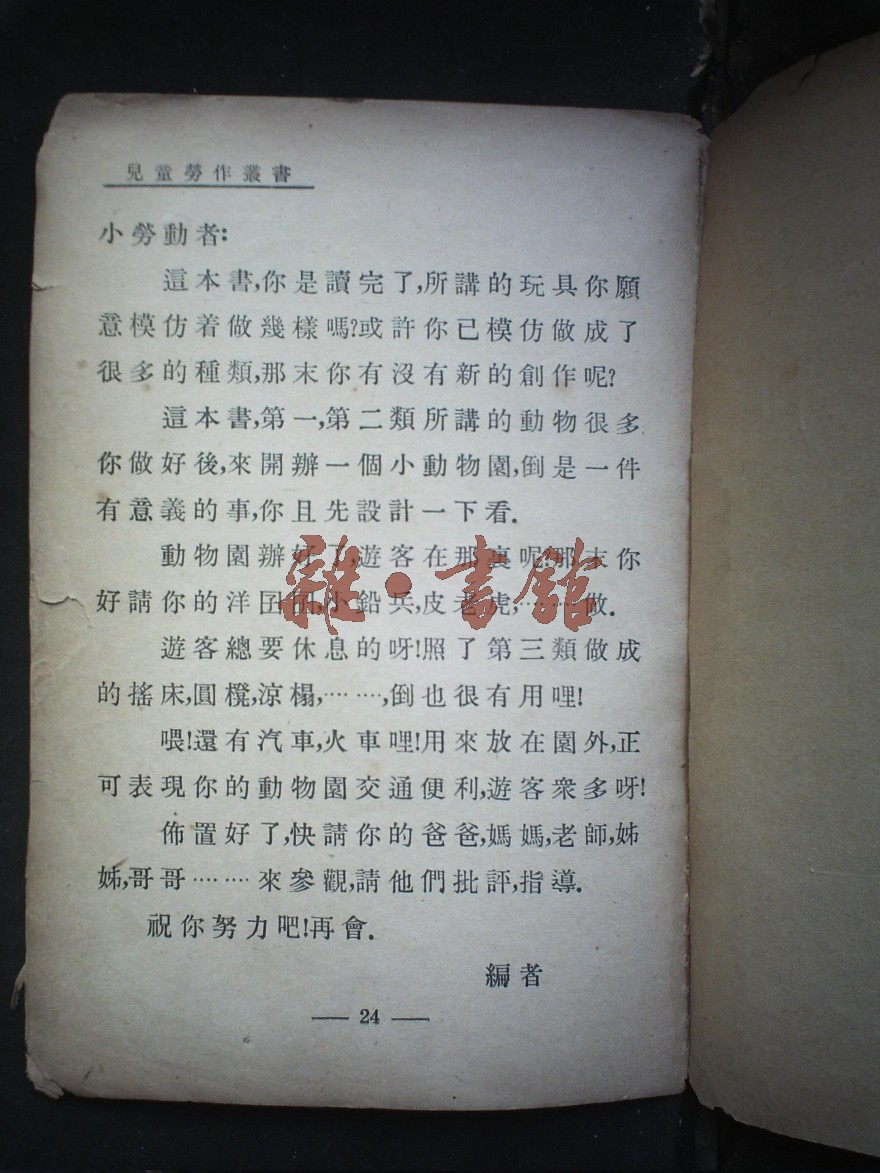 兒童勞作叢書
小勞動者:
這本書,你是讀完了,所講的玩具你願
意模仿着做幾樣嗎?或許你已模仿做成了
很多的種類,那末你有沒有新的創作呢?
這本書,第一,第二類所講的動物很多
你做好後,來開辦一個小動物園,倒是一件
有意義的事,你且先設計一下看.
動物園辦好了,遊客在那裏呢?那末你
好請你的洋囝囝,小鉛兵,皮老虎,………做.
遊客總要休息的呀!照了第三類做成
的搖床,圓櫈,涼榻,………,倒也很有用哩!
喂!還有汽車,火車哩!用來放在園外,正
可表現你的動物園交通便利,遊客衆多呀!
佈置好了,快請你的爸爸,媽媽,老師,姊
姊,哥哥………來參觀,請他們批評,指導.
祝你努力吧!再會.
編者
— 24 —
雜·書館